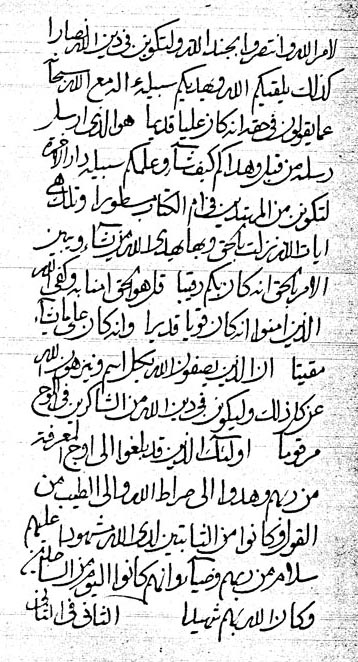 لامر الله وانتصروا بجند الله ولتكونن في دين الله نصارا
كذلك يلقيكم الله ويهديكم سبيله الله سبحا
عما يقولون في حقه انه كان عليا قديما هو الذي ارسل
رسله من قبل وهداكم كيف شاء وعلمكم سبيله دار الاخرة
لتكونن من المهتدين في ام الكتاب مسطورا وتلك هي
ايات الله نزلت بالحق وبها يهدي الله من يشاء ويبين
الامر بالحق انه كان بكم رقيبا قل هو الحق امنا به وكفى الله
الذين امنوا انه كان قويا قديرا وانه كان على ما يشاء
مقيتا ان الذين يصفون الله بكل اسم ونزهوا الله
عن كل ذلك وليكونن في دين الله من الشاكرين في اللوح
مرقوما اولئك الذين قد بلغوا الى اوج المعرفة
من ربهم وهدوا الى صراط الله والى الطيب من
القول وكانوا من الثابتين لدى الله مشهودا عليهم
سلام من ربهم وانهم كانوا اليوم من
وكان الله بهم شهيدا الثاني في الثاني